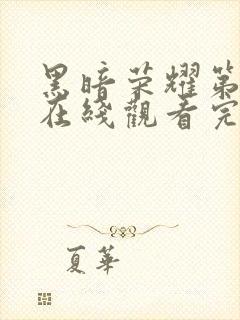 黑暗荣耀第
在綫觀看完
夏華